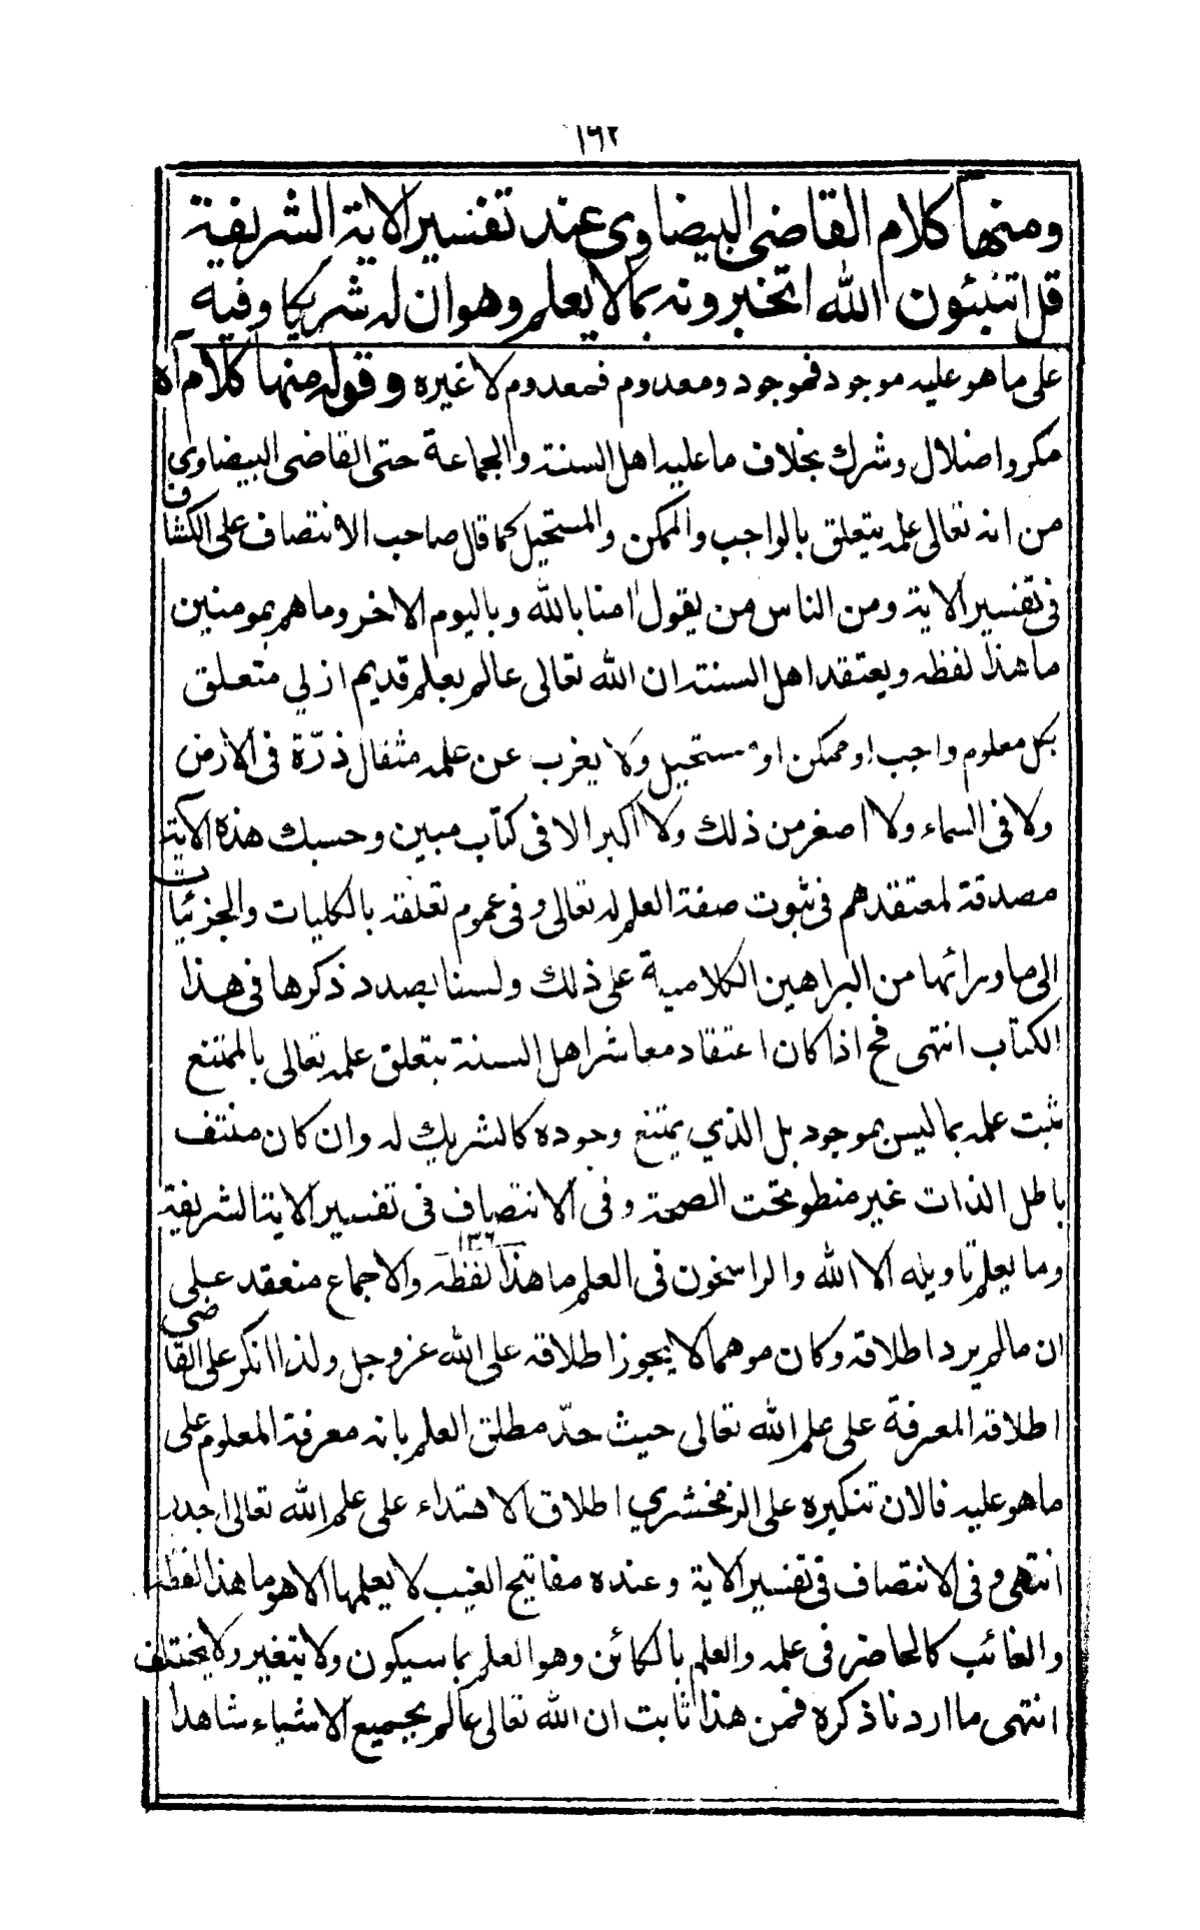 ١٦٢
ومنها كلام القاضى البيضاوى عند تفسير الاية الشريفة
قل اتنبئون الله اتخبرونه بما لا يعلم وهو ان له شريكا وفيه
على ما هو عليه موجود فموجود ومعدوم فمعدوم لا غيره وقوله منها كلام آه
مكر واضلال وشرك بخلاف ما عليه اهل السنة والجماعة حتى القاضى البيضاوى
من انه تعالى علمه يتعلق بالواجب والممكن والمستحيل كما قال صاحب الانتصاف على الكشاف
فى تفسير الاية ومن الناس من يقول امنا بالله وباليوم الاخر وما هم بمومنين
ما هذا لفظه ويعتقد اهل السنة ان الله تعالى عالم بعلم قديم ازلي متعلق
بكل معلوم واجب او ممكن او مستحيل ولا يغرب عن علمه مثقال ذرّة فى الارض
ولا فى السماء ولا اصغر من ذلك ولا اكبر الا فى كتاب مبين وحسبك هذه الآية
مصدقة لمعتقدهم فى ثبوت صفة العلم له تعالى وفى عموم تعلقه بالكليات والجزئيات
الى ما ورائها من البراهين الكلامية على ذلك ولسنا بصدد ذكرها فى هذا
الكتاب انتهى فح اذا كان اعتقاد معاشر اهل السنة بتعلق علمه تعالى بالممتنع
ثبت علمه بما ليس بموجود بل الذي يمتنع وجوده كالشريك له وان كان منتف
باطل الذات غير منطو تحت الصحة وفى الانتصاف فى تفسير الاية الشريفة
وما يعلم تاويله الا الله والراسخون فى العلم ما هذا لفظه ١٣٦ والاجماع منعقد على
ان ما لم يرد اطلاقه وكان موهما لا يجوز اطلاقه على الله عز وجل ولذا انكر على القاضى
اطلاقه المعرفة على علم الله تعالى حيث حدّ مطلق العلم بانه معرفة المعلوم على
ما هو عليه فالان تنكيره على الزمخشري اطلاق الاهتداء على علم الله تعالى اجدر
انتهى وفى الانتصاف فى تفسير الاية وعنده مفاتيح الغيب لا يعلمها الا هو ما هذا لفظه
والغائب كالحاضر فى علمه والعلم بالكائن وهو العلم بما سيكون ولا يتغير ولا يختلف
انتهى ما اردنا ذكره فمن هذا ثابت ان الله تعالى عالم بجميع الاشياء شاهدا